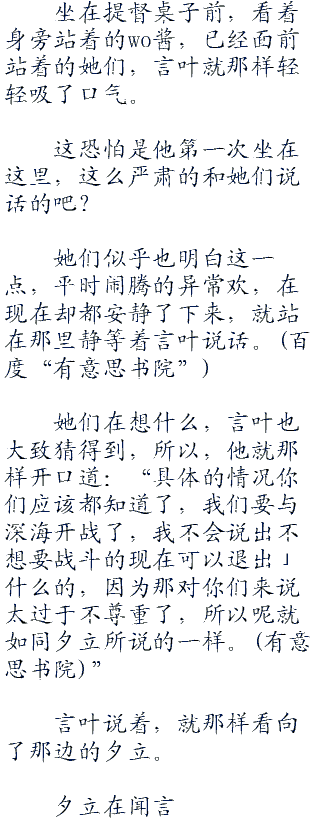 坐在提督桌子前，看着
身旁站着的wo酱，已经面前
站着的她们，言叶就那样轻
轻吸了口气。
这恐怕是他第一次坐在
这里，这么严肃的和她们说
话的吧？
她们似乎也明白这一
点，平时闹腾的异常欢，在
现在却都安静了下来，就站
在那里静等着言叶说话。(百
度“有意思书院”)
她们在想什么，言叶也
大致猜得到，所以，他就那
样开口道：“具体的情况你
们应该都知道了，我们要与
深海开战了，我不会说出不
想要战斗的现在可以退出」
什么的，因为那对你们来说
太过于不尊重了，所以呢就
如同夕立所说的一样。(有意
思书院)”
言叶说着，就那样看向
了那边的夕立。
夕立在闻言